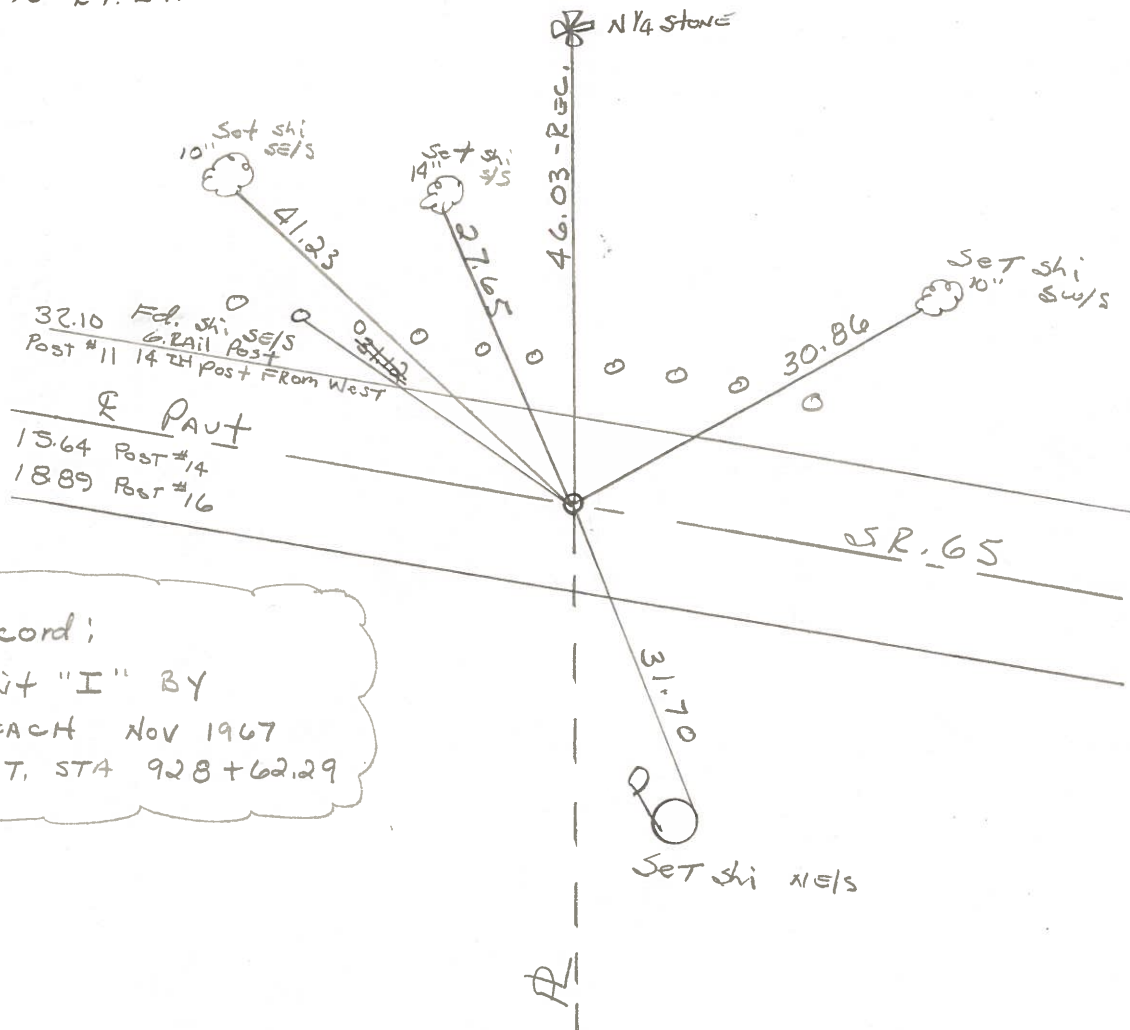 N 1/4 STONE
46.03-REC.
Set shi
10" SE/S
41.23
Set shi
14" S/S
27.65
SET shi
10" SW/S
30.86
32.10 Fd. shi SE/S
G.RAil Post
Post #11 14 TH Post FROM WesT
℄ PAVt
15.64 Post #14
18.89 Post #16
S.R. 65
cord;
it "I" BY
EACH Nov 1967
T. STA 928+62.29
31.70
SeT shi NE/S
PL